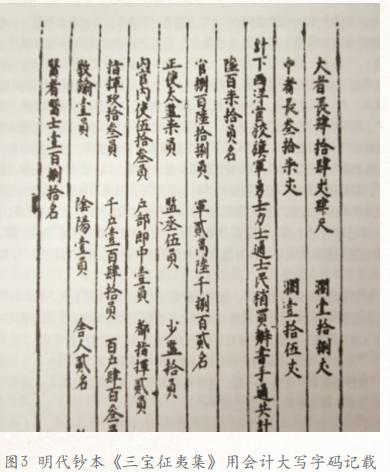 大者長肆拾肆丈肆尺 濶壹拾捌丈
中者長叁拾柒丈 濶壹拾伍丈
計下西洋官校旗軍勇士力士通士民稍買辦書手通共計
陸百柒拾員名
官捌百陸拾捌員 軍貳萬陸千捌百貳名
正使太監柒員 監丞伍員 少監拾員
内官内使伍拾叁員 户部郎中壹員 都指揮貳員
指揮玖拾叁員 千户壹百肆拾員 百户肆百叁員
教諭壹員 陰陽壹員 舍人貳名
醫者醫士壹百捌拾名
图3 明代钞本《三宝征夷集》用会计大写字码记载